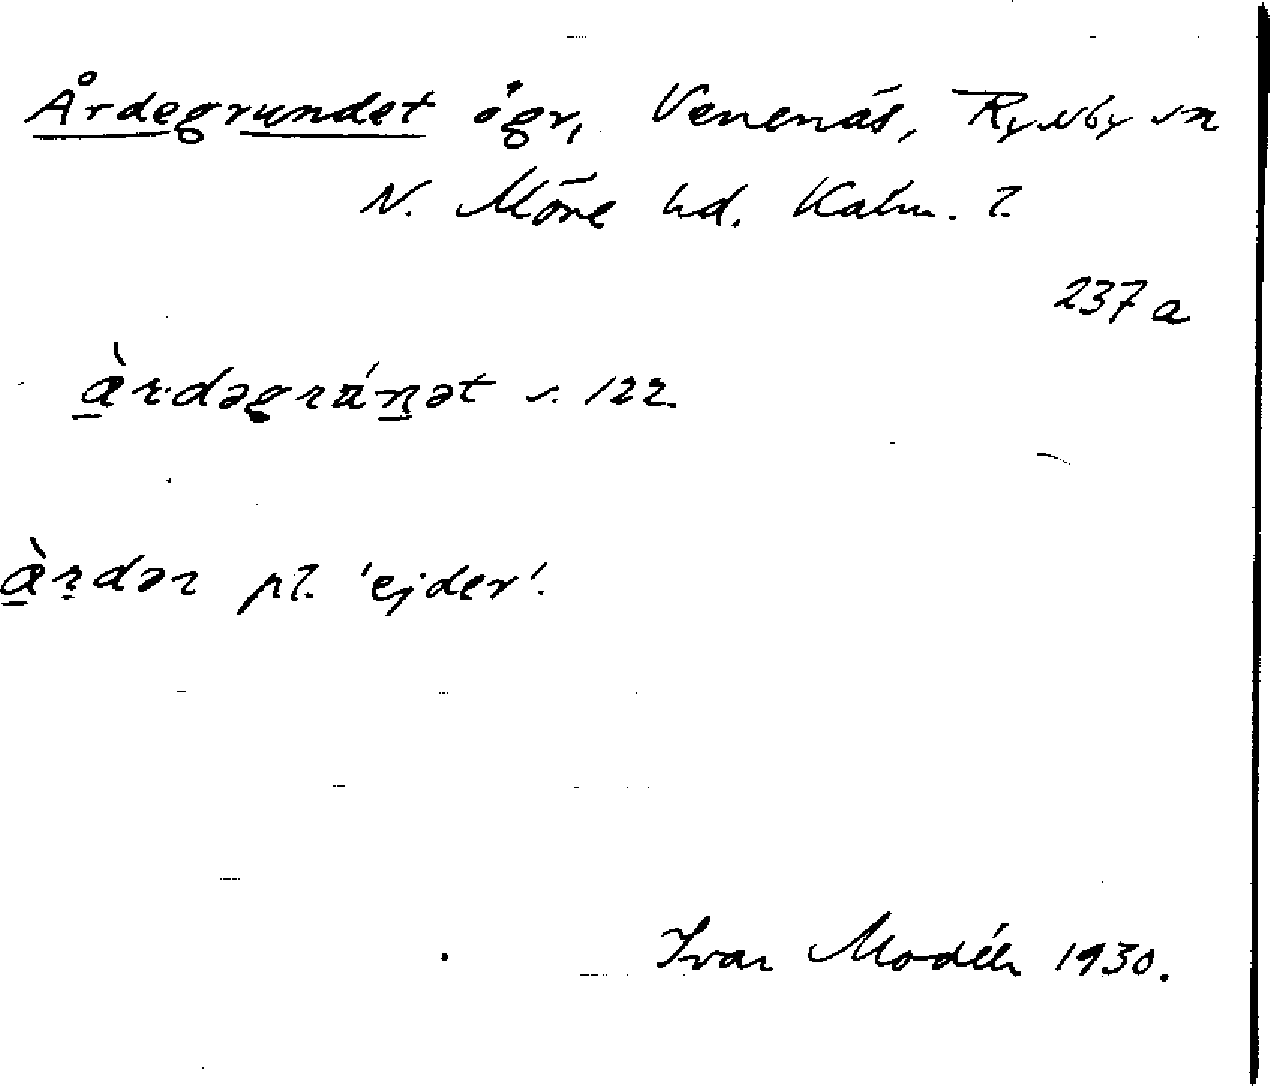 Årdegrundet ögr, Venenäs, Ryssby sn
N. Möre hd. Kalm. l.
237 a
àrdəgrúnət s. 122.
àrdər pl. 'ejder'.
Ivar Modéer 1930.